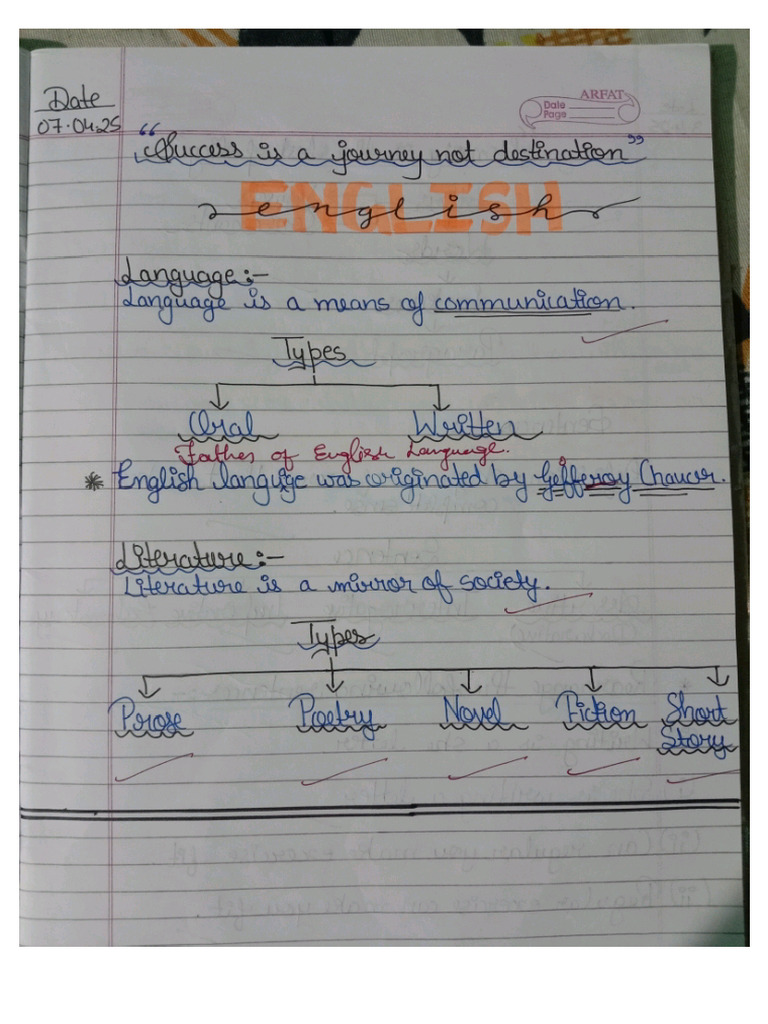 Date
07.04.25
ARFAT
Date
Page
"Success is a journey not destination"
ENGLISH
english
Language:-
Language is a means of communication.
Types
Oral Written
Father of English Language.
* English languige was originated by Gefferoy Chaucer.
Literature:-
Literature is a mirror of society.
Types
Prose Poetry Novel Fiction Short
Story